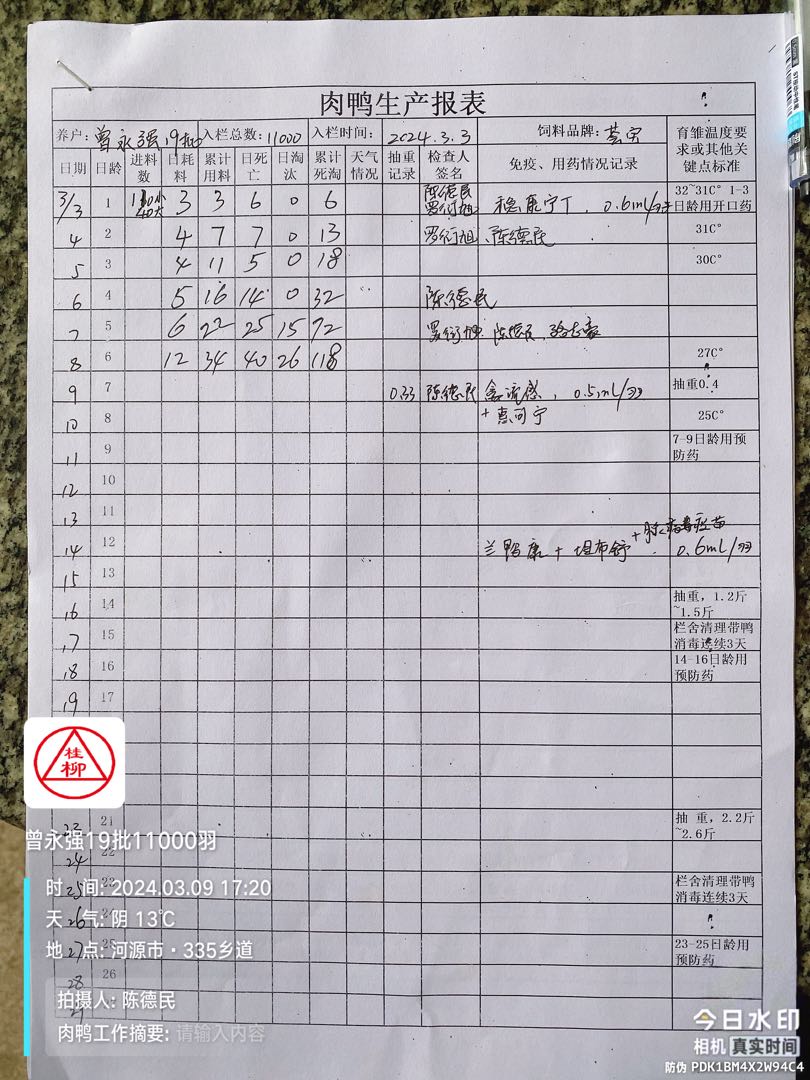 肉鸭生产报表
养户: 曾永强19批 入栏总数: 11000 入栏时间: 2024.3.3 饲料品牌: 育雏温度要求或其他关键点标准
日期 日龄 进料数 日耗料 累计用料 日死亡 日淘汰 累计死淘 天气情况 抽重记录 检查人签名 免疫、用药情况记录
3/3 1 3 3 6 0 6 陈德民 罗衍旭 0.6mL/羽 32~31C° 1-3日龄用开口药
4 2 4 7 7 0 13 罗衍旭、陈德民 31C°
5 3 4 11 5 0 18 30C°
6 4 5 16 14 0 32 陈德民
7 5 6 22 25 15 72 罗衍旭 陈德民
8 6 12 34 40 26 118 27C°
9 7 0.33 陈德民 禽流感, 0.5mL/羽 抽重0.4
10 8 25C°
11 9 7-9日龄用预防药
12 10
13 11
14 12 0.6mL/羽
15 13
16 14 抽重, 1.2斤~1.5斤
17 15 栏舍清理带鸭消毒连续3天
18 16 14-16日龄用预防药
19 17
桂柳
21 抽 重, 2.2斤~2.6斤
曾永强19批11000羽
24 22
25 23 栏舍清理带鸭消毒连续3天
时 间: 2024.03.09 17:20
26 24
天 气: 阴 13℃
27 25 23-25日龄用预防药
地 点: 河源市·335乡道
28 26
拍摄人: 陈德民
肉鸭工作摘要: 请输入内容
今日水印
相机 真实时间
防伪 PDK1BM4X2W94C4